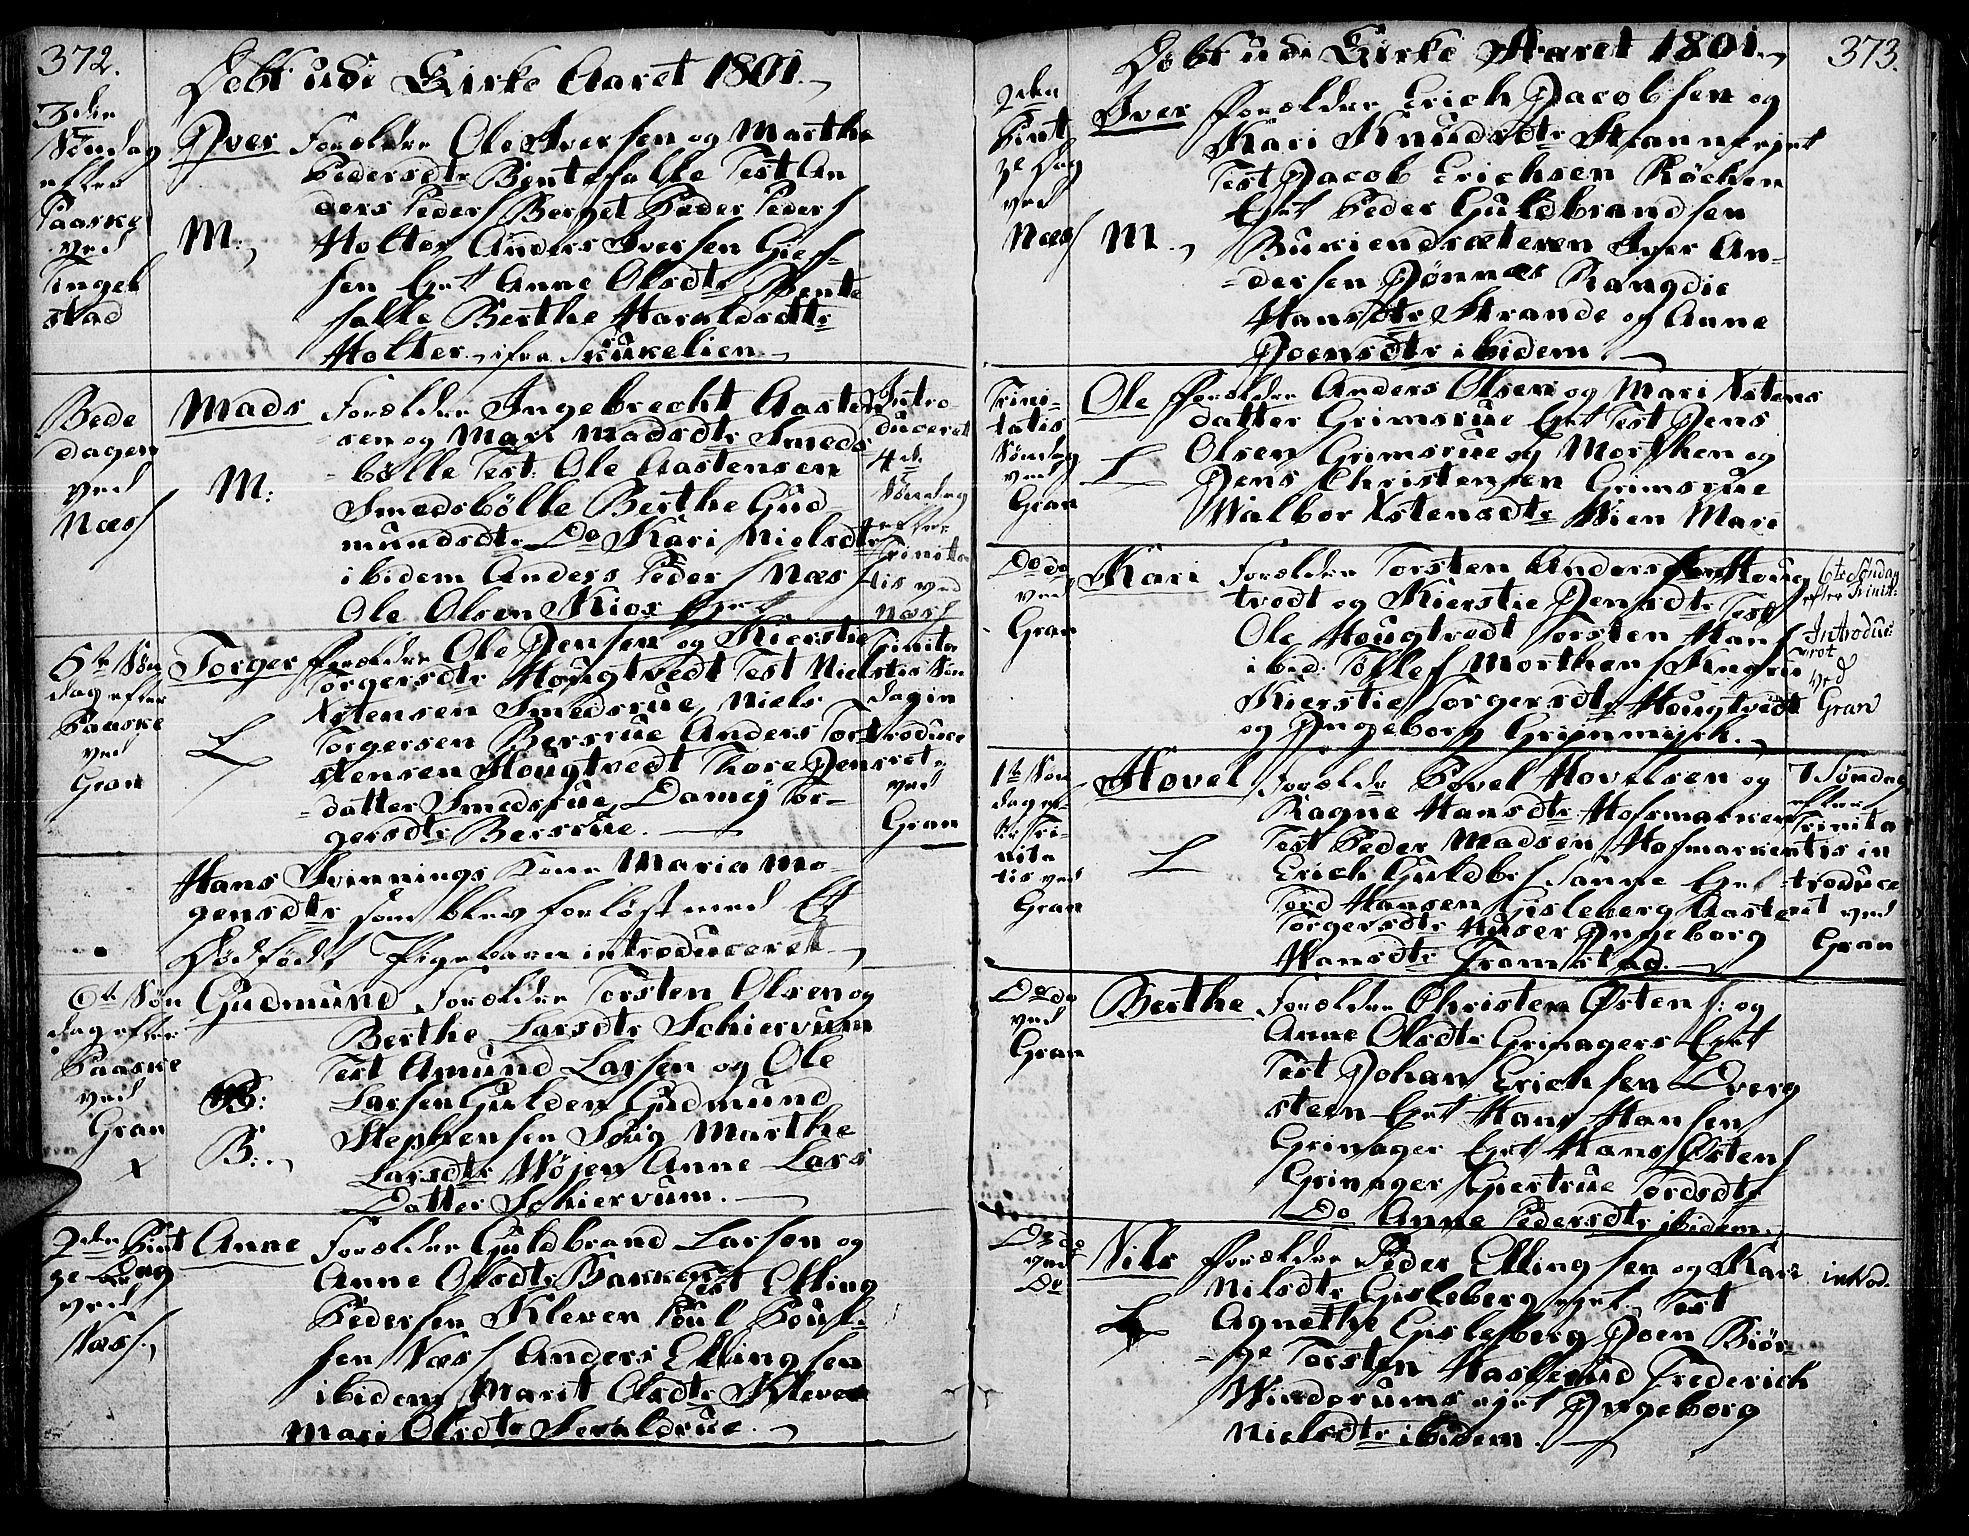 372.
Døbt udi Kirke Aaret 1801.
3die
Søndag
efter
Paaske
ved
Tingel
stad
Iver Forældre Ole Iversen og Marthe
Pedersdtr Bentefalle Test An
ders Peders Berget Peder Peders
M: Holter Anders Iversen Gief-
sen Eyet Anne Olsdtr Bente
falle Berthe Haraldsdtr
Holter, ifra Skukelien
Bede
dagen
ved
Næss
Mads Forældre Ingebrecht Aasten
sen og Mari Madsdtr Smeds
M: bølle Test: Ole Aastensen
Smedsbølle Berthe Gud
mundsdtr Do Kari Nielsdtr
ibidem Anders Peders Næs
Ole Olsen Kios Eyet
Intro-
duceret
4de
Søndag
efter
Trinita
tis ved
Næss
5te Søn
dag efter
Paaske
ved
Gran
Torger Forældre Ole Jensen og Kierstie
Torgersdtr Hougtvedt Test Niels
Xstensen Smedsrue, Niels
L Torgersen Bersrue Anders Tor
stensen Hougtvedt Thore Jens
datter Smedsrue, Damey Tor-
gersdtr Bersrue.
Trinita
tis Søn
dag in
troduce
ret
ved
Gran
Hans Svinnings Kone Maria Mo-
gensdtr som blev forløst med Et
Dødfødt Pigebarn introduceret
6te Søn
dag efter
Paaske
ved
Gran
x
Gudmund Forældre Torsten Olsen og
Berthe Larsdtr Schiervum
Test Amund Larsen og Ole
B: Larsen Gulden Gudmund
Stephensen Soug Marthe
B. Larsdtr Wøjen Anne Lars
Datter Schiervum.
2den Pint
ze Dag
ved
Næss.
Anne Forældre Guldbrand Larsen og
Anne Olsdtr Barken Test Elling
Pedersen Kleven Poul Poul-
sen Næss Anders Ellingsen
ibidem Marit Olsdtr Kleven
Mari Olsdtr Seraldrue.
373.
Døbt udi Kirke Aaret 1801.
2den
Pint
ze Dag
ved
Næss
Iver Forældre Erich Jacobsen og
Kari Knudsdtr Strann ejet
Test Jacob Erichsen Røchen
Eyet Peder Guldbrandsen
M. Buriendsæteren Iver An-
dersen Dønnæs Rangdie
Hansdtr Strande og Anne
Joensdtr ibidem.
Trini-
tatis
Søndag
ved
Gran
Ole Forældre Anders Olsen og Mari Xstens
datter Grimsrue Eyet Test Jens
L Olsen Grimsrue og Morthen og
Jens Christensen Grimsrue
Walbor Xstensdtr Wien Mari
Do do
ved
Gran
Kari Forældre Torsten Andersen Houg
tvedt og Kierstie Jensdtr Test
Ole Hougtvedt Torsten Hans
ibid: Tollefs Morthens
Kierstie Torgersdtr Hougtvedt
og Ingeborg Grinmyrh.
6te Søndag
efter Trinit:
Introdue
rot
ved
Gran
1te Søn
dag ef-
ter Tri-
nita
tis ved
Gran
Hovel Forældre Povel Hovelsen og
Ragne Hansdtr Hofsmarken
Test Peder Madsen Hofmarken
L Erich Guldbrs Sanne Eyet
Tord Hansen Gisleberg Aaste
Torgersdtr Huser Ingeborg
Hansdtr Framstad.
7 Søndag
efter
Trinita
tis in
troduce
ret ved
Gran
Do do
ved
Gran
Berthe Forældre Christen Østens: og
Anne Olsdtr Grinagers Eyet
Test Johan Erichsen Dverg
steen Eyet Hans Hansen
Grinager Eyet Hans Østens
Grinager Giertrue Tordsdtr
Do Anne Pedersdtr ibidem.
Do do
ved
Do
Nils Forældre Peder Ellingsen og Kari
Nilsdtr Gisleberg eyet. Test
L Agnethe Gisleberg Joen Biør-
ge Torsten Haslerud Frederich
Windorums ejet Ingeborg
Nielsdtr ibidem.
introd.